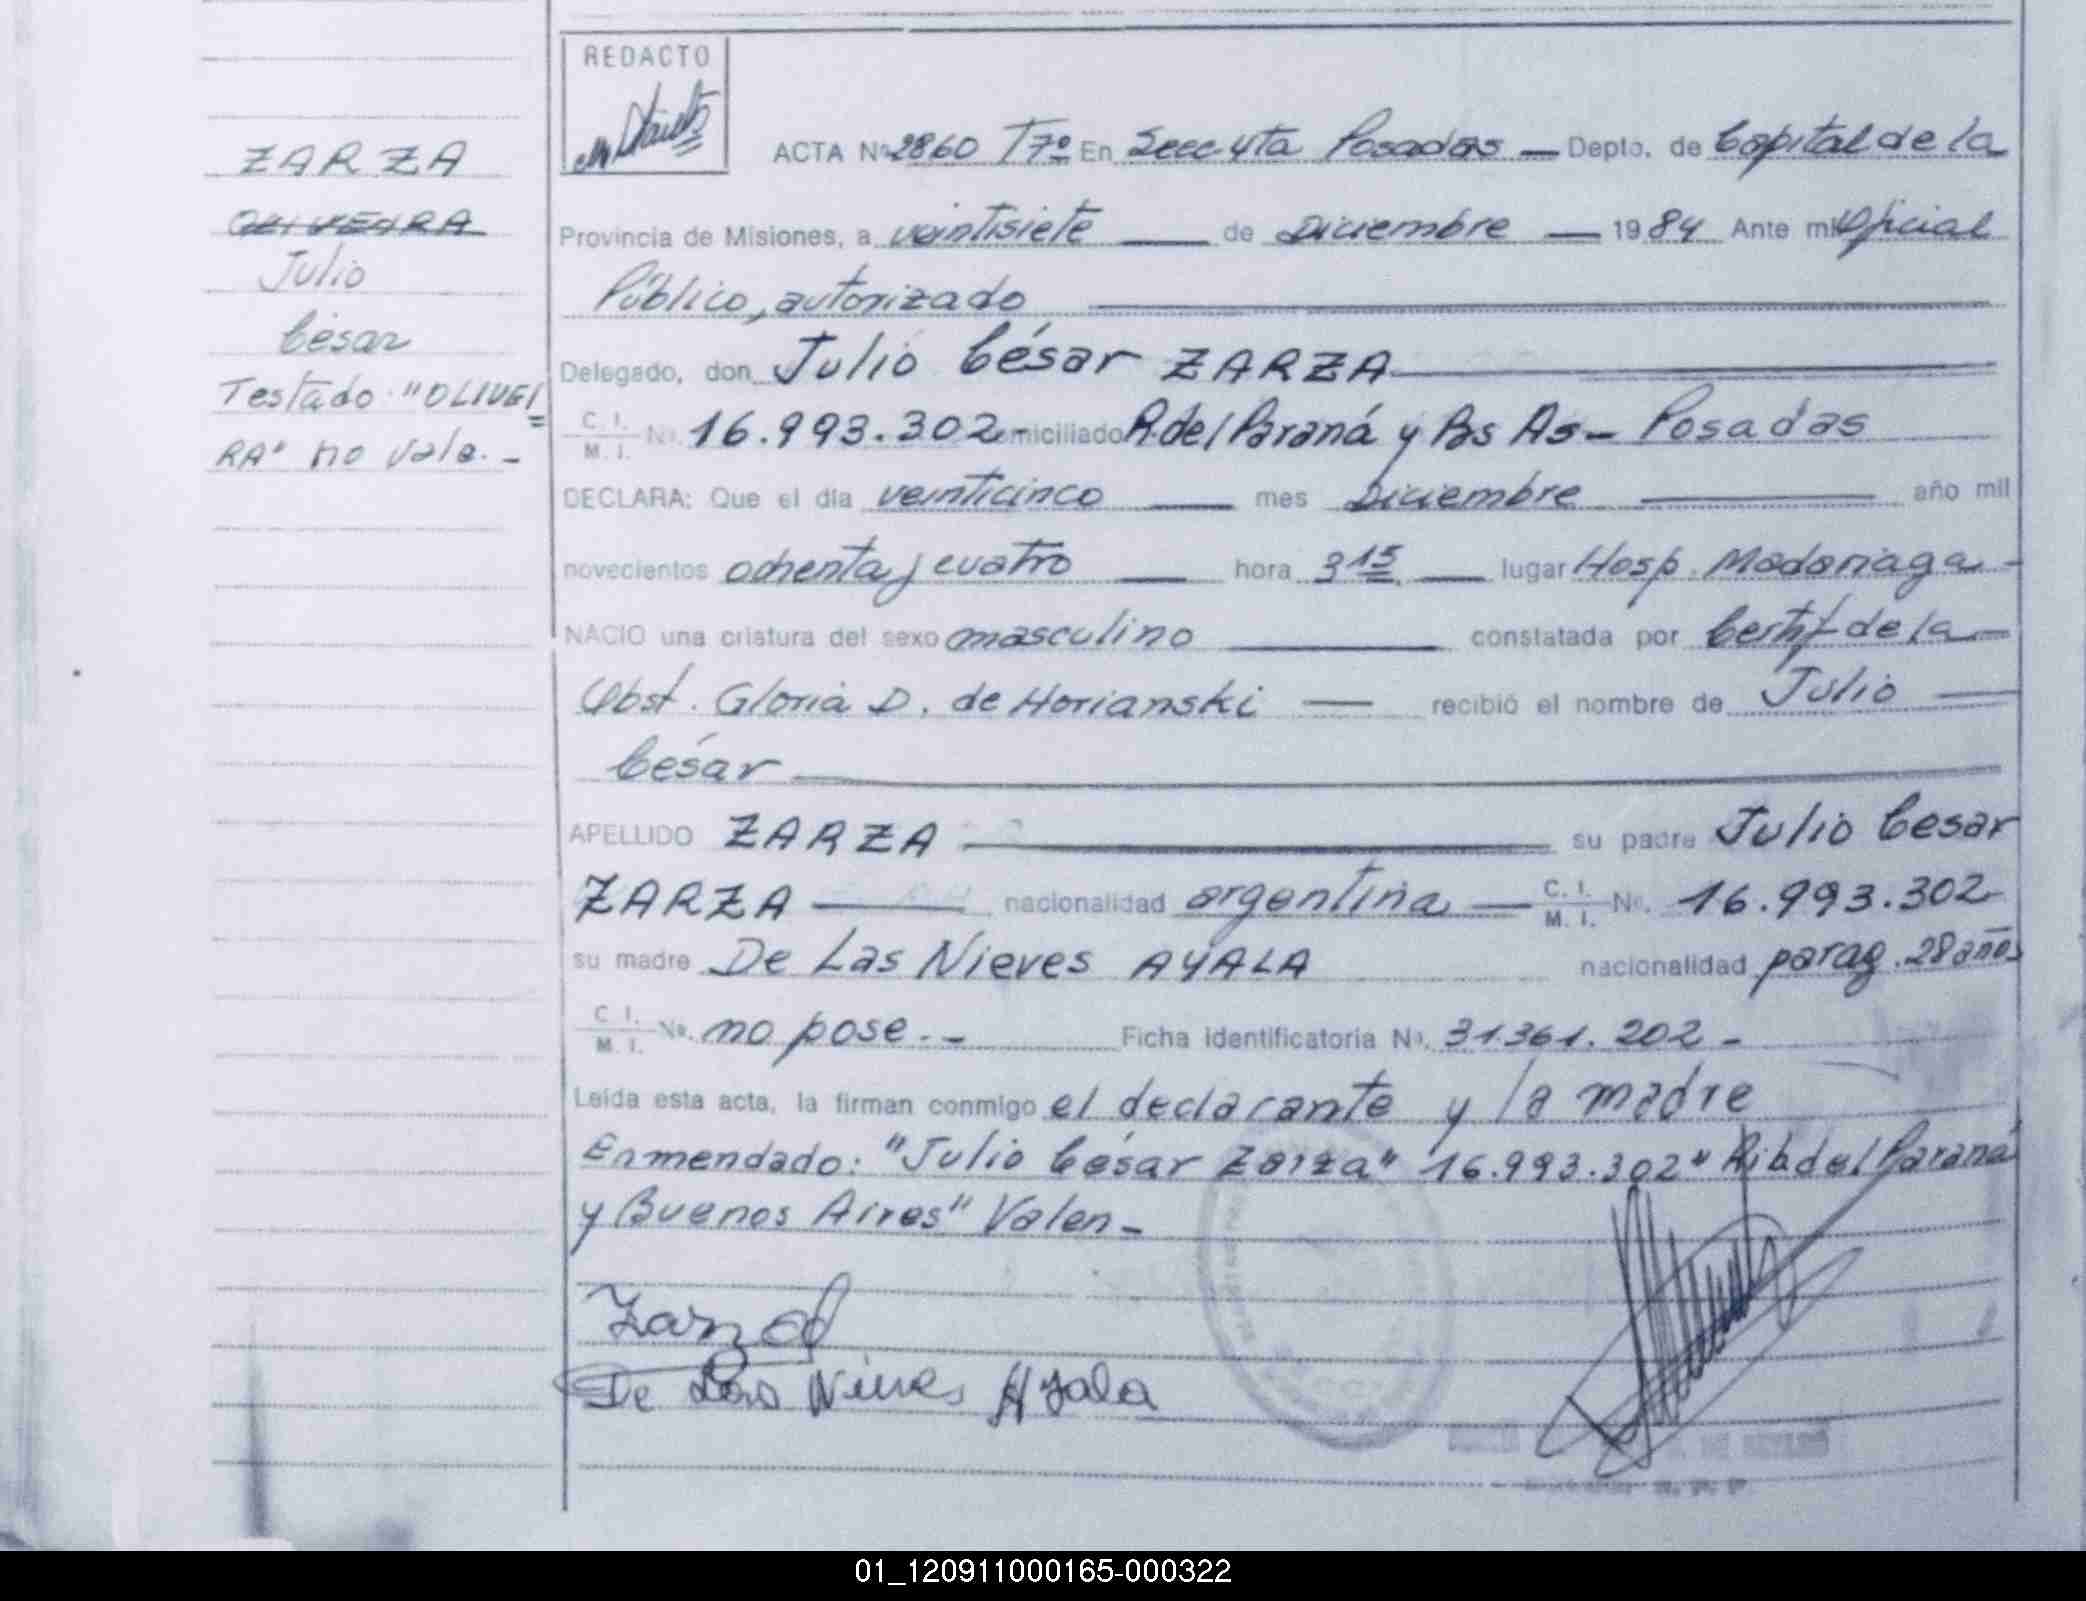 REDACTO
ACTA Nº 2860 T7º En Secc 4ta Posadas — Depto. de Capital de la
ZARZA
OLIVEIRA
Provincia de Misiones, a veintisiete — de Diciembre — 1984 Ante mi Oficial
Julio
Público, autorizado
César
Delegado, don Julio César ZARZA
Testado "OLIVEI
RA" no vale. -
C. I. M. I. Nº. 16.993.302 domiciliado R. del Paraná y Bs As - Posadas
DECLARA: Que el día veinticinco — mes Diciembre — año mil
novecientos ochenta y cuatro — hora 3 15 — lugar Hosp. Madariaga -
NACIO una criatura del sexo masculino — constatada por Certif de la
Obst. Gloria D. de Horianski — recibió el nombre de Julio
César
APELLIDO ZARZA — su padre Julio Cesar
ZARZA — nacionalidad argentina — C. I. M. I. Nº. 16.993.302
su madre De Las Nieves AYALA nacionalidad parag. 28 años
C. I. M. I. Nº. no pose. - Ficha identificatoria Nº. 31.361.202 -
Leída esta acta, la firman conmigo el declarante y la madre
Enmendado: "Julio César Zarza" 16.993.302" Rib del Paraná
y Buenos Aires" Valen -
De Las Nieves Ayala
01_120911000165-000322